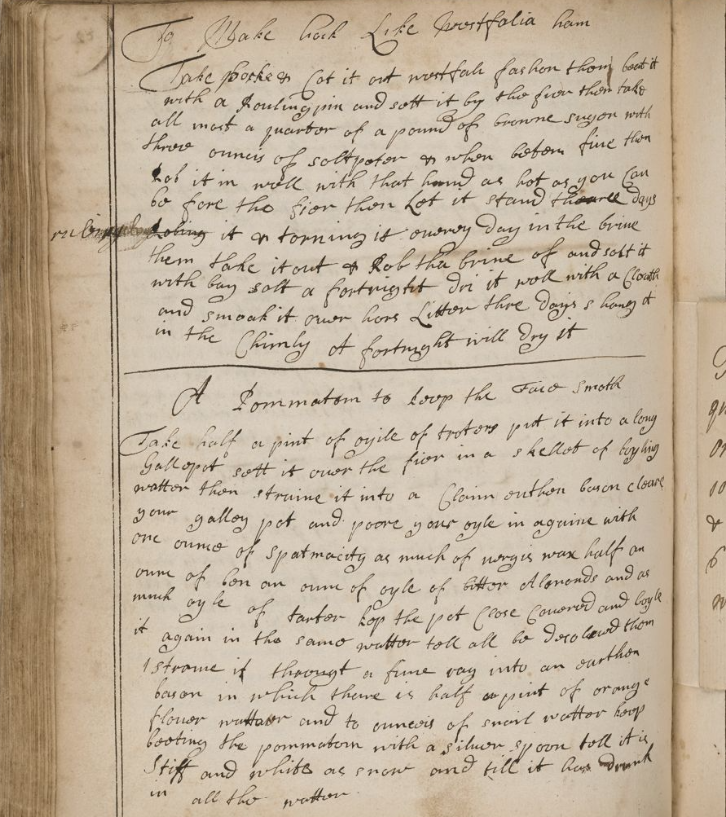 To Make hock Like Westfalia ham
Take porke & Cot it out westfali fashon then beat it
with a Roulingpin and sett it by the fier then take
all most a quarter of a pound of browne suger with
three ouncis of soltpeter & when beten fine then
Rob it in well with that hand as hot as you Can
be fore the fier then Let it stand days
Robing it & torning it euerey day in the brine
them take it out & Rob tha brine of and solt it
with bay solt a fortnight dri it well with a Cloath
and smoak it ouer hors Litter thre days & hang it
in the Chimly ot fortnight will dry it
A Pommatom to keep the Face smoth
Take half a pint of oyile of troters put it into a long
Gallepot sett it ouer the fier in a skellet of boyling
watter then straine it into a Claim erthen bason
your galley pot and poore your oyle in againe with
one ounce of spatmacity as much of uergis wax half an
ounc of ben an ounc of oyle of bitter Almonds and as
much oyle of tarter kep the pot Close Couered and boyle
it again in the same watter tell all be desolued then
straine it through a fine rag into an earthen
bason in which thare is half a pint of orange
flower wattaer and to ounceis of snail watter keep
beeting the pommatom with a silver spoon tell it is
Stiff and white as snow and till it has drunk
in all the watter